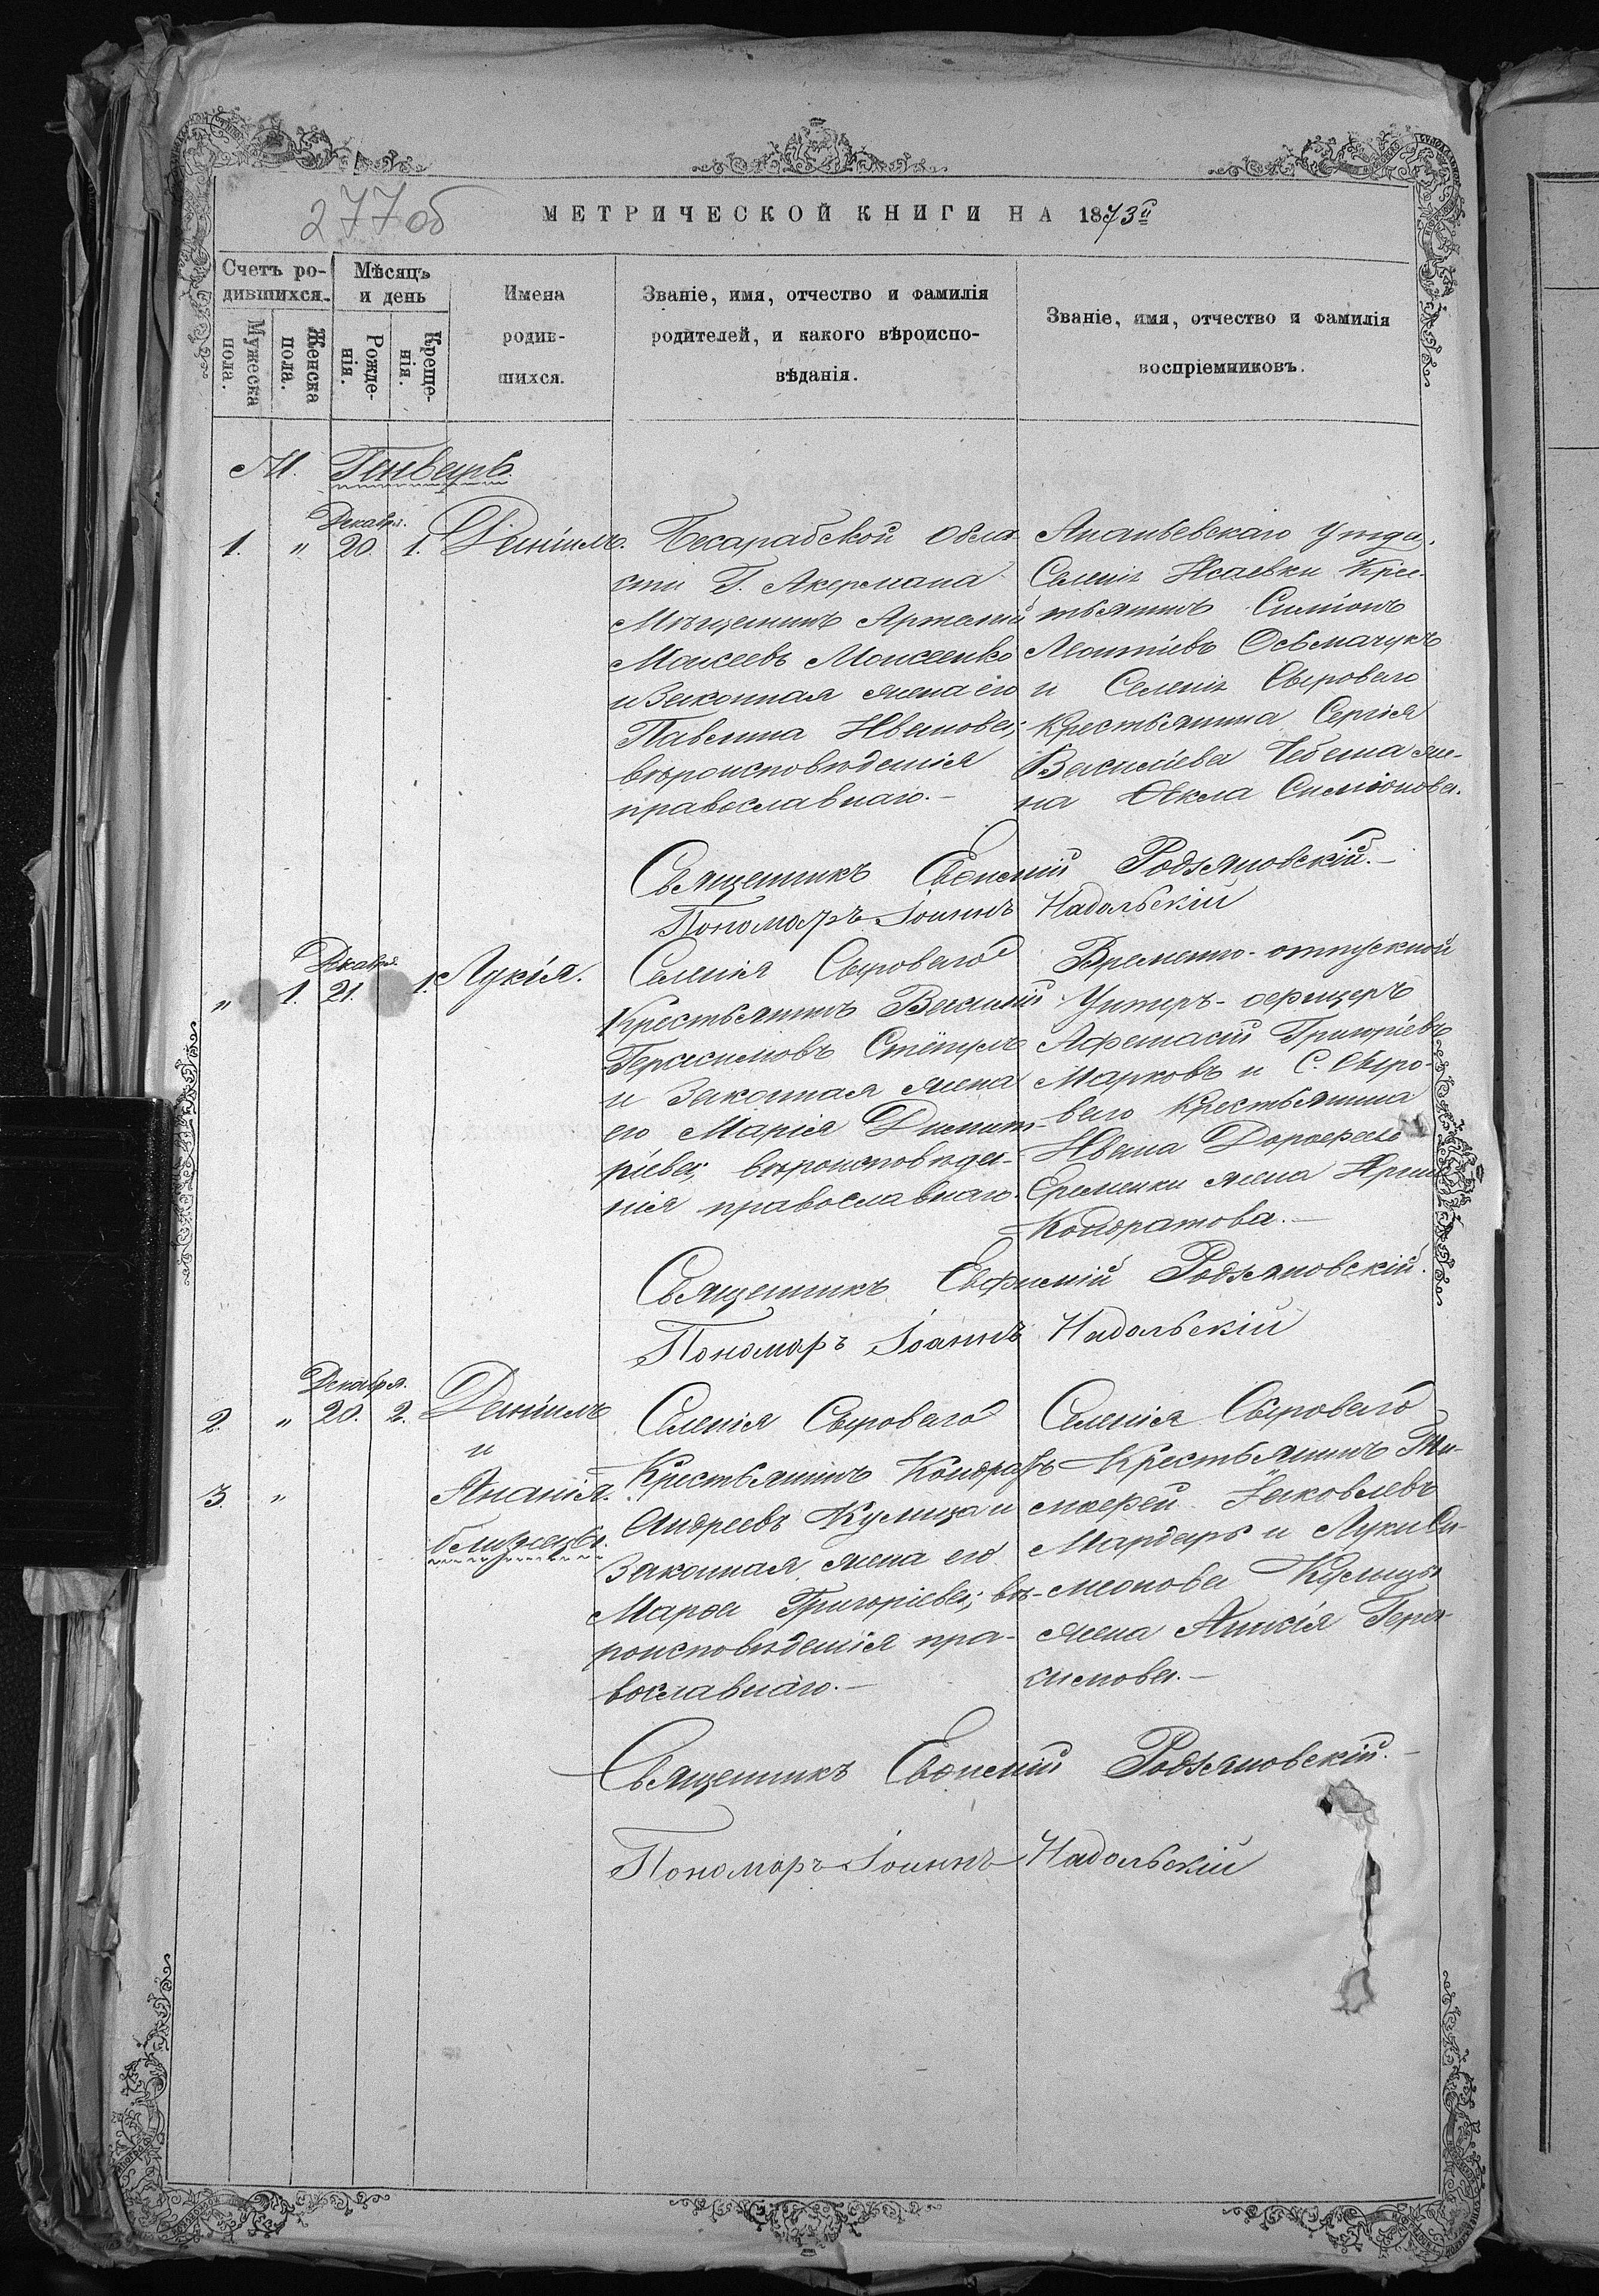 277об
МЕТРИЧЕСКОЙ КНИГИ НА 1873й
Счетъ ро-
дившихся.
Мужеска
пола.
Женска
пола.
Мѣсяцъ
и день
Рожде-
нія.
Креще-
нія.
Имена
родив-
шихся.
Званіе, имя, отчество и фамилія
родителей, и какого вѣроиспо-
вѣданія.
Званіе, имя, отчество и фамилія
воспріемниковъ.
М. Генварь.
Декабря.
1. " 20. 1. Даніилъ.
Бесарабской Обла-
сти Г. Акермана
Мѣщанинъ Артемій
Моисеевъ Моисеенко
и Законная жена его
Павлина Иванова;
вѣроисповѣданія
православнаго.-
Ананьевскаго Уѣзда,
Селенія Исаевки Крес-
тьянинъ Симіонъ
Леонтіевъ Осьмачукъ
и Селенія Сыроваго
Крестьянина Сергія
Василіева Чебана же-
на Ѳекла Симіонова.
Священникъ Евѳимій Родзяновскій.-
Пономаръ Іоаннъ Надольскій
Декабря
" 1. 21. 1. Лукія.
Селенія Сыроваго
Крестьянинъ Василій
Герасимовъ Стёпулъ
и Законная жена
его Марія Димит-
ріева; вѣроисповѣда-
нія православнаго.
Временно-отпускной
Унтеръ-офицеръ
Афанасій Григоріевъ
Марковъ и С. Сыро-
ваго Крестьянина
Ивана Дорофеева
Еременки жена Ирина
Кондратова.-
Священникъ Евфимій Родзяновскій.
Пономаръ Іоаннъ Надольскій
Декабря.
2. " 20. 2. Даніилъ
и
3. " Ананія.
близнецы.
Селенія Сыроваго
Крестьянинъ Кондратъ
Андреевъ Кулица и
Законная жена его
Марѳа Григоріева; вѣ-
роисповѣданія пра-
вославнаго.-
Селенія Сыроваго
Крестьянинъ Ти-
моѳей Яковлевъ
Мардарь и Луки Си-
меонова Кулицы
жена Анисія Гера-
симова.-
Священникъ Евѳимій Родзяновскій.-
Пономаръ Іоаннъ Надольскій